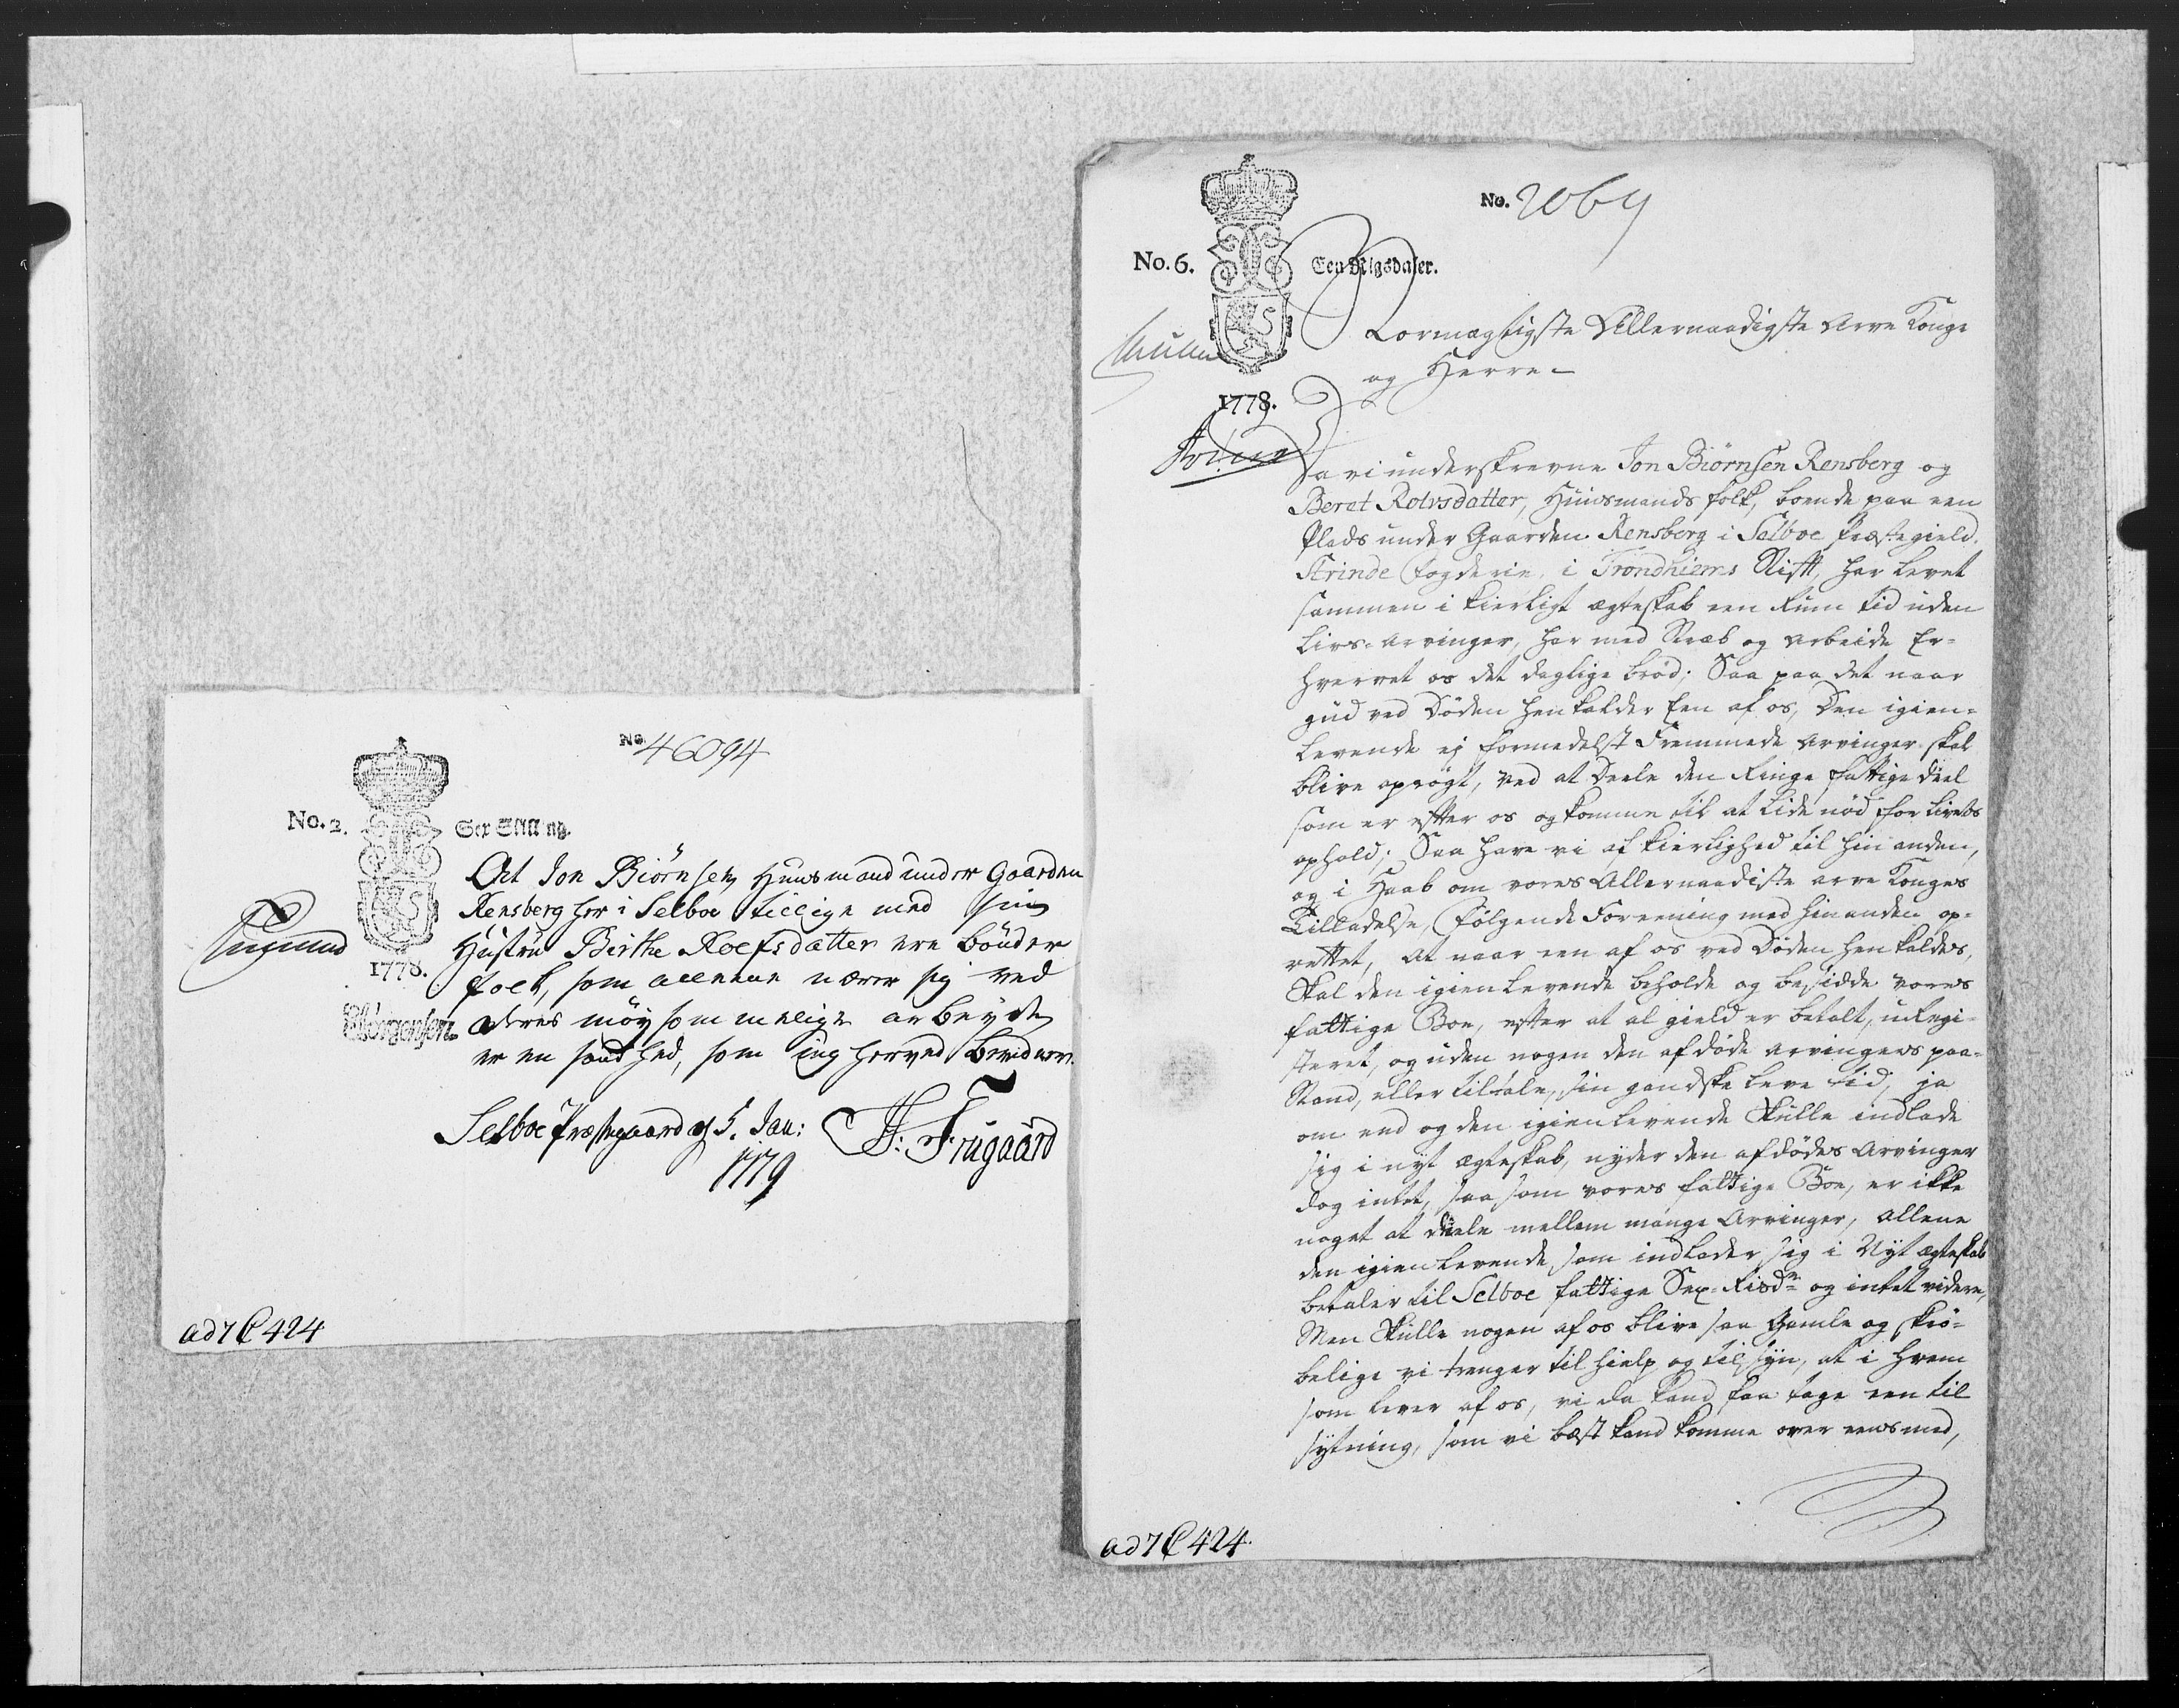 No. 46094
No. 2.
Sex Skilling.
1778.
At Jon Biörnsen Huusmand under Gaarden
Rensberg her i Selboe tillige med sin
Hustru Birthe Roefsdatter ere bönder
folk, som alleene nærer sig ved
deres möysommelige arbeyde
er en sandhed, som jeg herved bevidner.
Selboe Præstegaard d 5. Jan:
1779
H: Frugaard
ad 7 C 424
No. 2064
No. 6.
Een Rigsdaler.
1778.
Stormægtigste Allernaadigste Arve Konge
og Herre
Da vi underskrevne Jon Biörnsen Rensberg og
Beret Rolvsdatter, Huusmands folk, boende paa een
Plads under Gaarden Rensberg i Selboe Præstegield.
Strinde Fogderie i Trondhiems Stift, har levet
sammen i kierligt ægteskab een Rum tid uden
Livs-arvinger, har med Stræb og arbeide Er-
hvervet os det daglige bröd; Saa paa det naar
gud ved Döden henkalder Een af os, Den igien-
levende ej formedelst Fremmede arvinger skal
blive oprögt, ved at Deele den Ringe fattige deel
som er efter os og komme til at lide nöd for livets
ophold; Saa have vi af kierlighed til hinanden,
og i Haab om vores Allernaadiste arve Konges
Tilladelse, fölgende Foreening med hinanden op-
rettet, At naar een af os ved Döden henkaldes,
Skal den igienlevende beholde og besidde vores
fattige Boe, efter at al gield er betalt, uRegi-
steret, og uden nogen den afdöde arvingers paa-
Stand, eller tiltale, sin gandske leve tid, ja
om end og den igienlevende Skulle indlade
sig i nyt ægteskab, nyder den afdödes Arvinger
dog intet, saa som vores fattige Boe, er ikke
noget at deele mellem mange Arvinger, allene
den igienlevende, som indlader sig i Nyt ægteskab
betaler til Selboe fattige Sex Risdr og intet videre,
Men Skulle nogen af os blive saa Gamle og skrö-
belige vi trenger til hielp og tilsyn, at i hvem
som lever af os, vi da kand faa tage een til
sytning, som vi best kand komme over eens med,
ad 7 C 424.